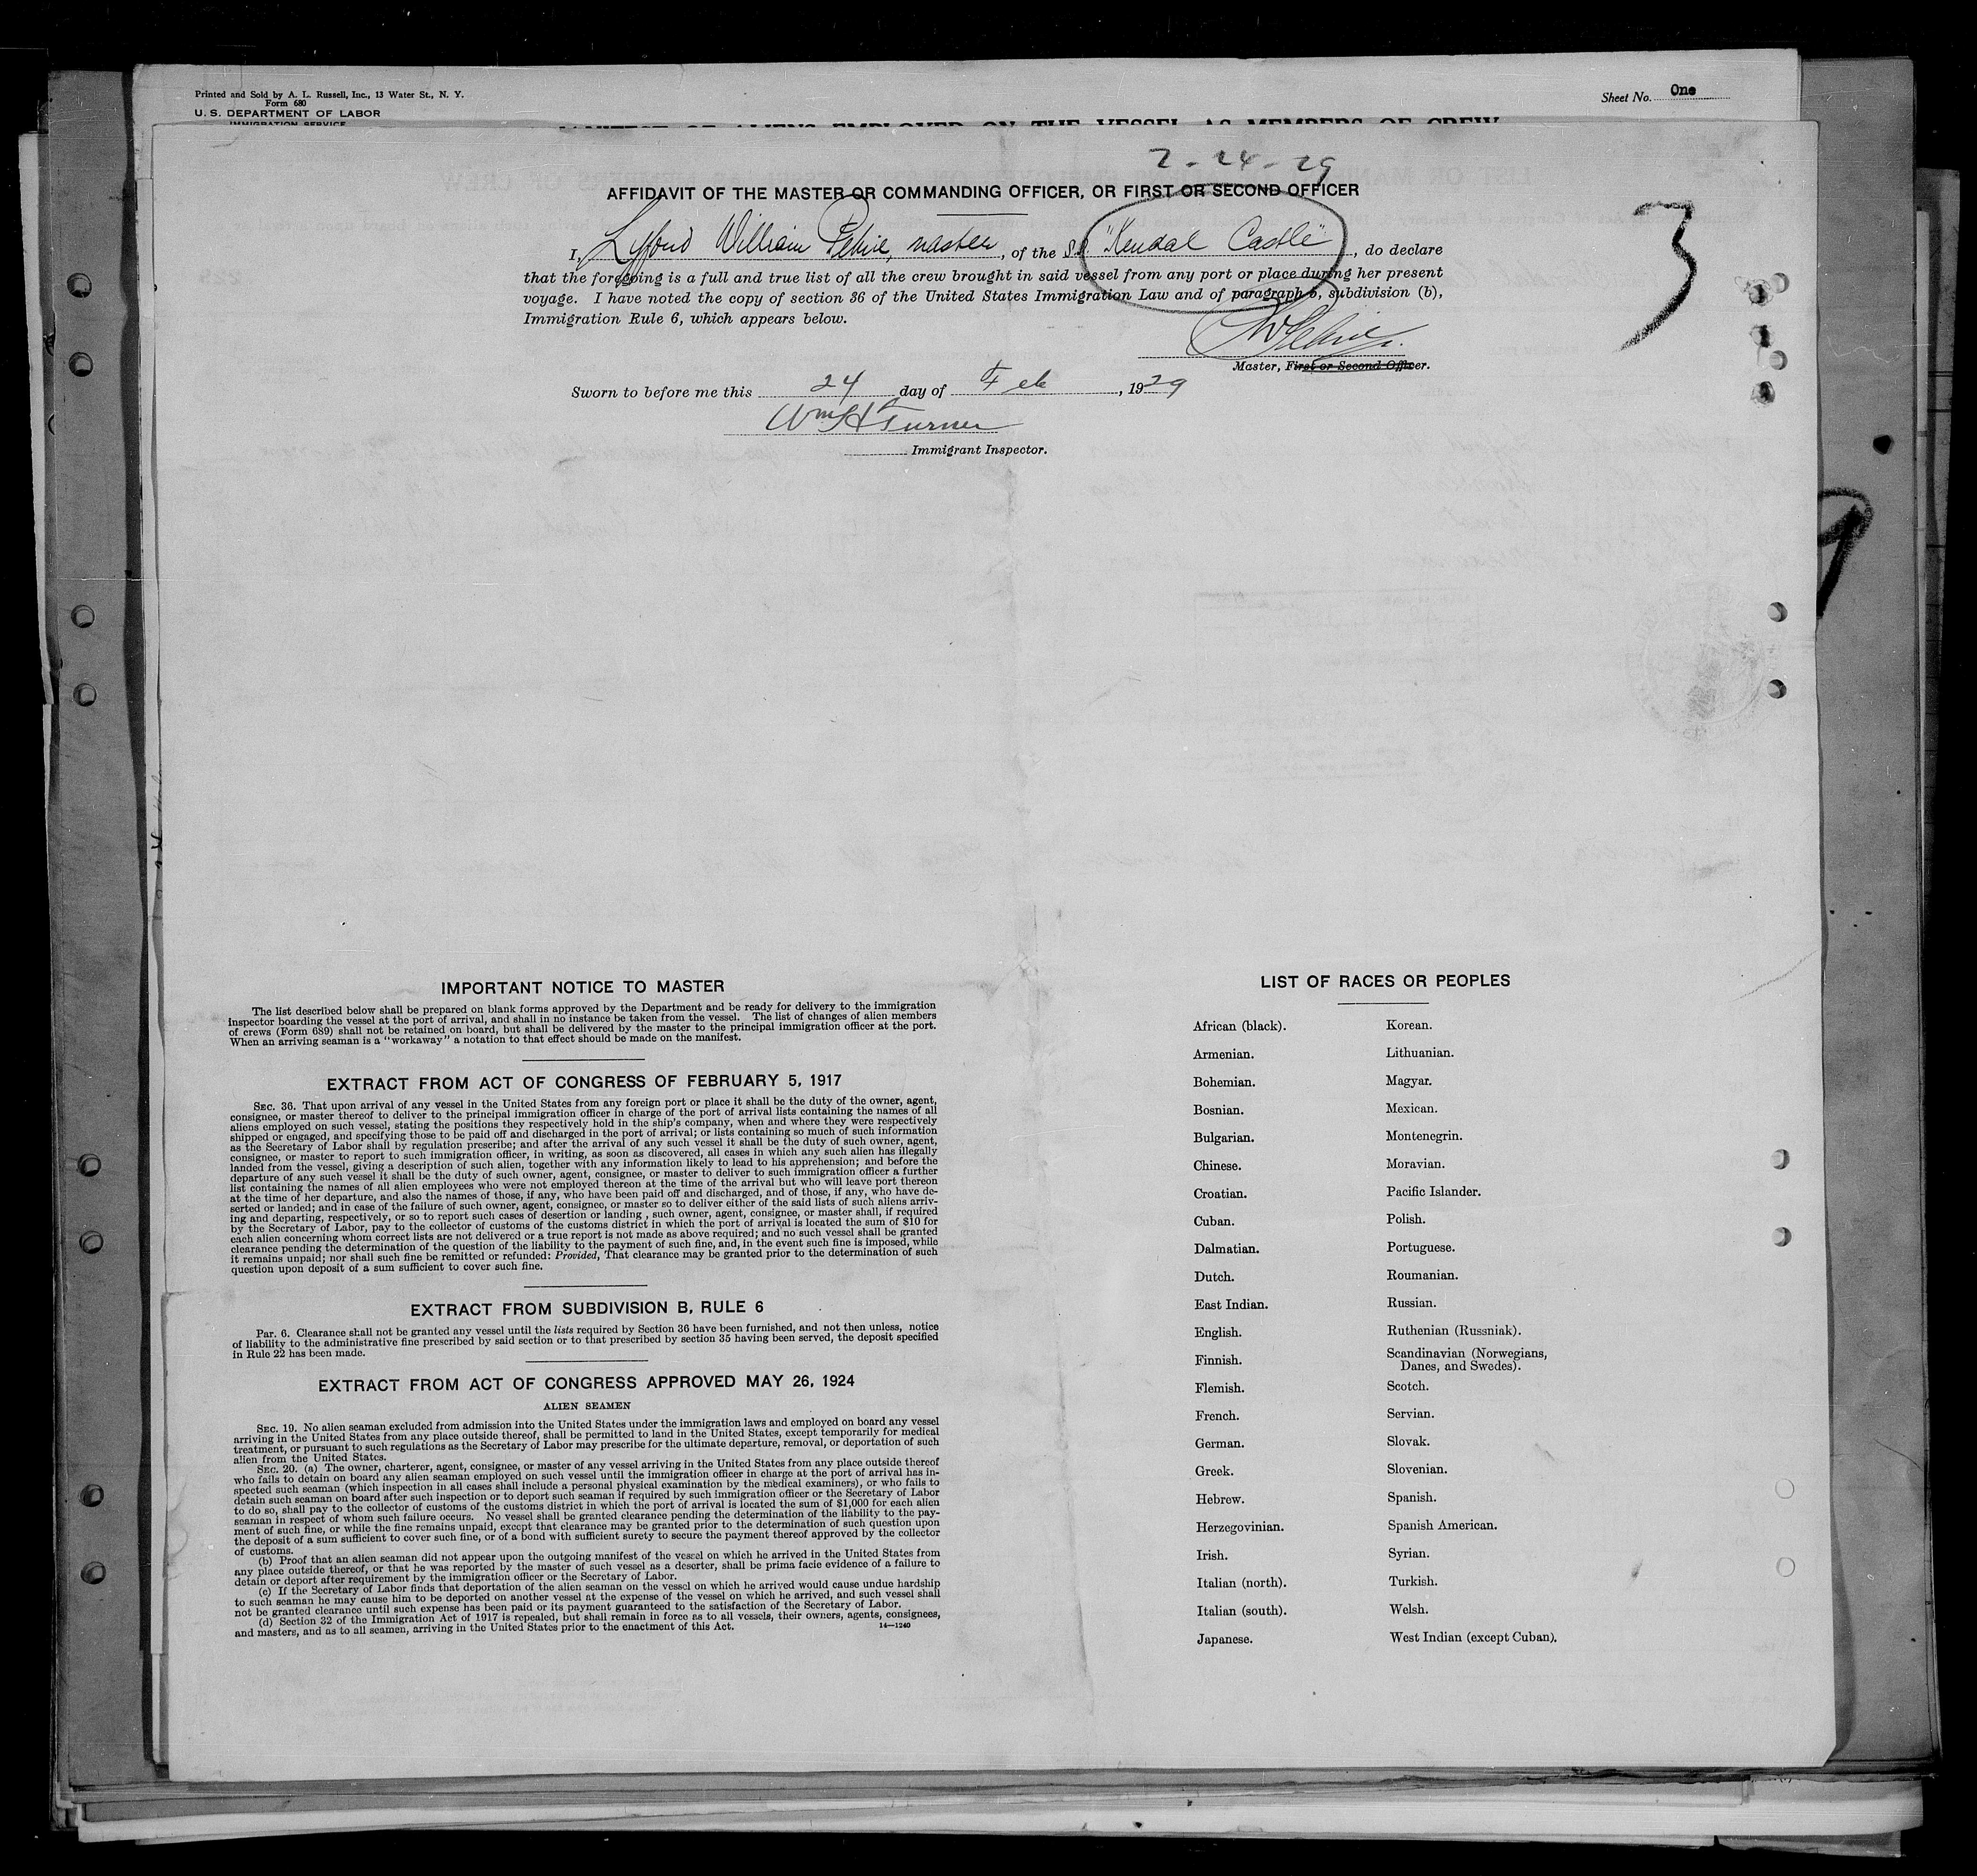 Printed and Sold by A. L. Russell, Inc., 13 Water St., N. Y.
Form 680
U. S. DEPARTMENT OF LABOR
IMMIGRATION SERVICE
Sheet No. One
MANIFEST OF ALIENS EMPLOYED ON THE VESSEL AS MEMBERS OF CREW
2-24-29
AFFIDAVIT OF THE MASTER OR COMMANDING OFFICER, OR FIRST OR SECOND OFFICER
3
I, William master, of the S.S. "Kendal Castle", do declare
that the foregoing is a full and true list of all the crew brought in said vessel from any port or place during her present
voyage. I have noted the copy of section 36 of the United States Immigration Law and of paragraph 6, subdivision (b),
Immigration Rule 6, which appears below.
Master, First or Second Officer.
Sworn to before me this 24 day of Feb, 1929
Wm H Turner
Immigrant Inspector.
IMPORTANT NOTICE TO MASTER
The list described below shall be prepared on blank forms approved by the Department and be ready for delivery to the immigration
inspector boarding the vessel at the port of arrival, and shall in no instance be taken from the vessel. The list of changes of alien members
of crews (Form 689) shall not be retained on board, but shall be delivered by the master to the principal immigration officer at the port.
When an arriving seaman is a "workaway" a notation to that effect should be made on the manifest.
EXTRACT FROM ACT OF CONGRESS OF FEBRUARY 5, 1917
SEC. 36. That upon arrival of any vessel in the United States from any foreign port or place it shall be the duty of the owner, agent,
consignee, or master thereof to deliver to the principal immigration officer in charge of the port of arrival lists containing the names of all
aliens employed on such vessel, stating the positions they respectively hold in the ship's company, when and where they were respectively
shipped or engaged, and specifying those to be paid off and discharged in the port of arrival; or lists containing so much of such information
as the Secretary of Labor shall by regulation prescribe; and after the arrival of any such vessel it shall be the duty of such owner, agent,
consignee, or master to report to such immigration officer, in writing, as soon as discovered, all cases in which any such alien has illegally
landed from the vessel, giving a description of such alien, together with any information likely to lead to his apprehension; and before the
departure of any such vessel it shall be the duty of such owner, agent, consignee, or master to deliver to such immigration officer a further
list containing the names of all alien employees who were not employed thereon at the time of the arrival but who will leave port thereon
at the time of her departure, and also the names of those, if any, who have been paid off and discharged, and of those, if any, who have de-
serted or landed; and in case of the failure of such owner, agent, consignee, or master so to deliver either of the said lists of such aliens arriv-
ing and departing, respectively, or so to report such cases of desertion or landing, such owner, agent, consignee, or master shall, if required
by the Secretary of Labor, pay to the collector of customs of the customs district in which the port of arrival is located the sum of $10 for
each alien concerning whom correct lists are not delivered or a true report is not made as above required; and no such vessel shall be granted
clearance pending the determination of the question of the liability to the payment of such fine, and, in the event such fine is imposed, while
it remains unpaid; nor shall such fine be remitted or refunded: Provided, That clearance may be granted prior to the determination of such
question upon deposit of a sum sufficient to cover such fine.
EXTRACT FROM SUBDIVISION B, RULE 6
Par. 6. Clearance shall not be granted any vessel until the lists required by Section 36 have been furnished, and not then unless, notice
of liability to the administrative fine prescribed by said section or to that prescribed by section 35 having been served, the deposit specified
in Rule 22 has been made.
EXTRACT FROM ACT OF CONGRESS APPROVED MAY 26, 1924
ALIEN SEAMEN
SEC. 19. No alien seaman excluded from admission into the United States under the immigration laws and employed on board any vessel
arriving in the United States from any place outside thereof, shall be permitted to land in the United States, except temporarily for medical
treatment, or pursuant to such regulations as the Secretary of Labor may prescribe for the ultimate departure, removal, or deportation of such
alien from the United States.
SEC. 20. (a) The owner, charterer, agent, consignee, or master of any vessel arriving in the United States from any place outside thereof
who fails to detain on board any alien seaman employed on such vessel until the immigration officer in charge at the port of arrival has in-
spected such seaman (which inspection in all cases shall include a personal physical examination by the medical examiners), or who fails to
detain such seaman on board after such inspection or to deport such seaman if required by such immigration officer or the Secretary of Labor
to do so, shall pay to the collector of customs of the customs district in which the port of arrival is located the sum of $1,000 for each alien
seaman in respect of whom such failure occurs. No vessel shall be granted clearance pending the determination of the liability to the pay-
ment of such fine, or while the fine remains unpaid, except that clearance may be granted prior to the determination of such question upon
the deposit of a sum sufficient to cover such fine, or of a bond with sufficient surety to secure the payment thereof approved by the collector
of customs.
(b) Proof that an alien seaman did not appear upon the outgoing manifest of the vessel on which he arrived in the United States from
any place outside thereof, or that he was reported by the master of such vessel as a deserter, shall be prima facie evidence of a failure to
detain or deport after requirement by the immigration officer or the Secretary of Labor.
(c) If the Secretary of Labor finds that deportation of the alien seaman on the vessel on which he arrived would cause undue hardship
to such seaman he may cause him to be deported on another vessel at the expense of the vessel on which he arrived, and such vessel shall
not be granted clearance until such expense has been paid or its payment guaranteed to the satisfaction of the Secretary of Labor.
(d) Section 32 of the Immigration Act of 1917 is repealed, but shall remain in force as to all vessels, their owners, agents, consignees,
and masters, and as to all seamen, arriving in the United States prior to the enactment of this Act.
14—1240
LIST OF RACES OR PEOPLES
African (black).
Armenian.
Bohemian.
Bosnian.
Bulgarian.
Chinese.
Croatian.
Cuban.
Dalmatian.
Dutch.
East Indian.
English.
Finnish.
Flemish.
French.
German.
Greek.
Hebrew.
Herzegovinian.
Irish.
Italian (north).
Italian (south).
Japanese.
Korean.
Lithuanian.
Magyar.
Mexican.
Montenegrin.
Moravian.
Pacific Islander.
Polish.
Portuguese.
Roumanian.
Russian.
Ruthenian (Russniak).
Scandinavian (Norwegians,
Danes, and Swedes).
Scotch.
Servian.
Slovak.
Slovenian.
Spanish.
Spanish American.
Syrian.
Turkish.
Welsh.
West Indian (except Cuban).